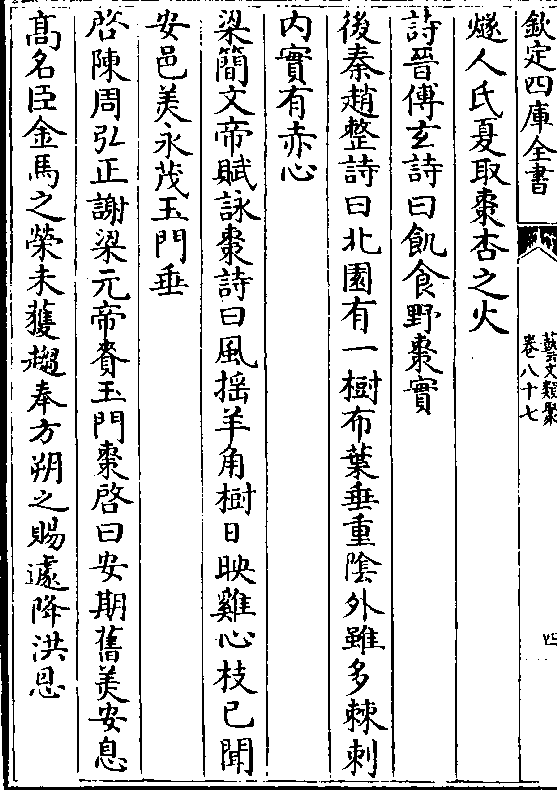 欽定四庫全書
藝文類聚
卷八十七
四
燧人氏夏取棗杏之火
詩晉傅玄詩曰飢食野棗實
後秦趙整詩曰北園有一樹布葉垂重陰外雖多棘刺
内實有赤心
梁簡文帝賦詠棗詩曰風揺羊角樹日映雞心枝已聞
安邑美永茂玉門垂
啓陳周弘正謝梁元帝賚玉門棗啓曰安期舊美安息
髙名臣金馬之榮未獲趨奉方朔之賜遽降洪恩